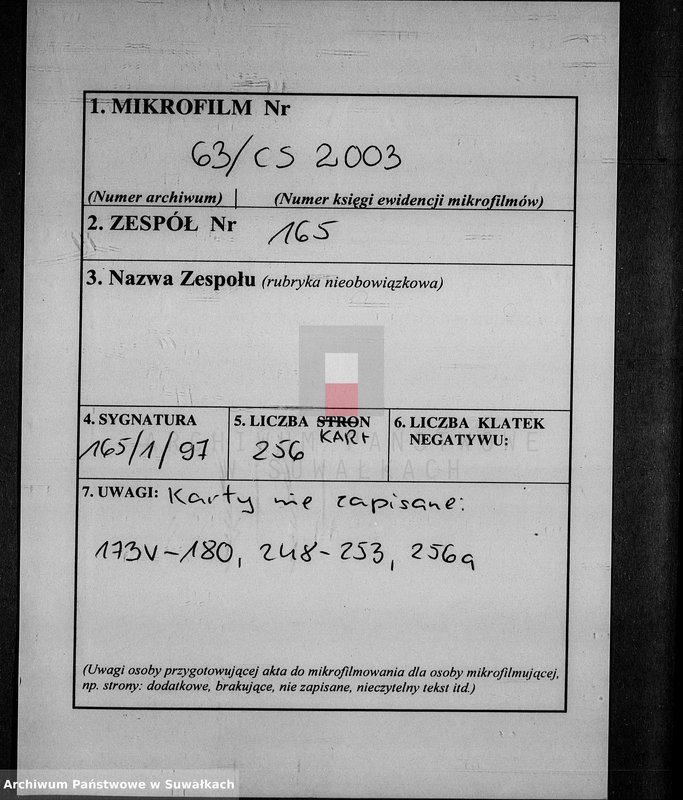 1. MIKROFILM Nr
63/CS 2003
(Numer archiwum) (Numer księgi ewidencji mikrofilmów)
2. ZESPÓŁ Nr 165
3. Nazwa Zespołu (rubryka nieobowiązkowa)
4. SYGNATURA
165/1/97
5. LICZBA STRON
KART
256
6. LICZBA KLATEK
NEGATYWU:
ARCHIWUM PAŃSTWOWE
W SUWAŁKACH
7. UWAGI: Karty nie zapisane:
173v-180, 248-253, 256a
(Uwagi osoby przygotowującej akta do mikrofilmowania dla osoby mikrofilmującej,
np. strony: dodatkowe, brakujące, nie zapisane, nieczytelny tekst itd.)
Archiwum Państwowe w Suwałkach